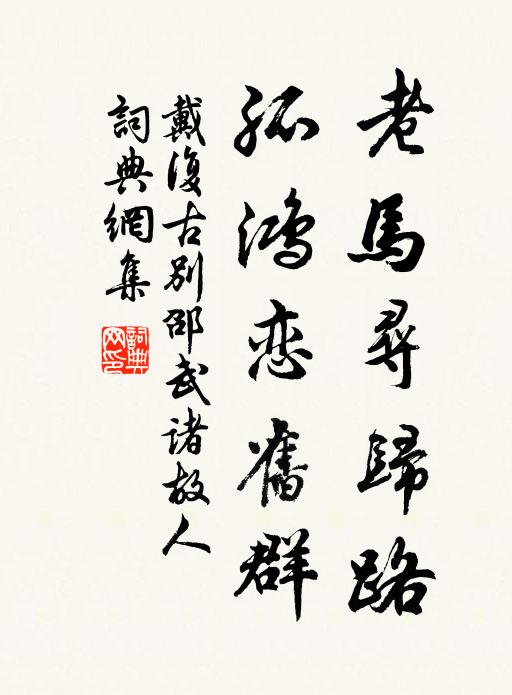 老馬尋歸路
孤鴻恋舊群
戴復古别邵武诸故人
詞典網集
詞典
网印